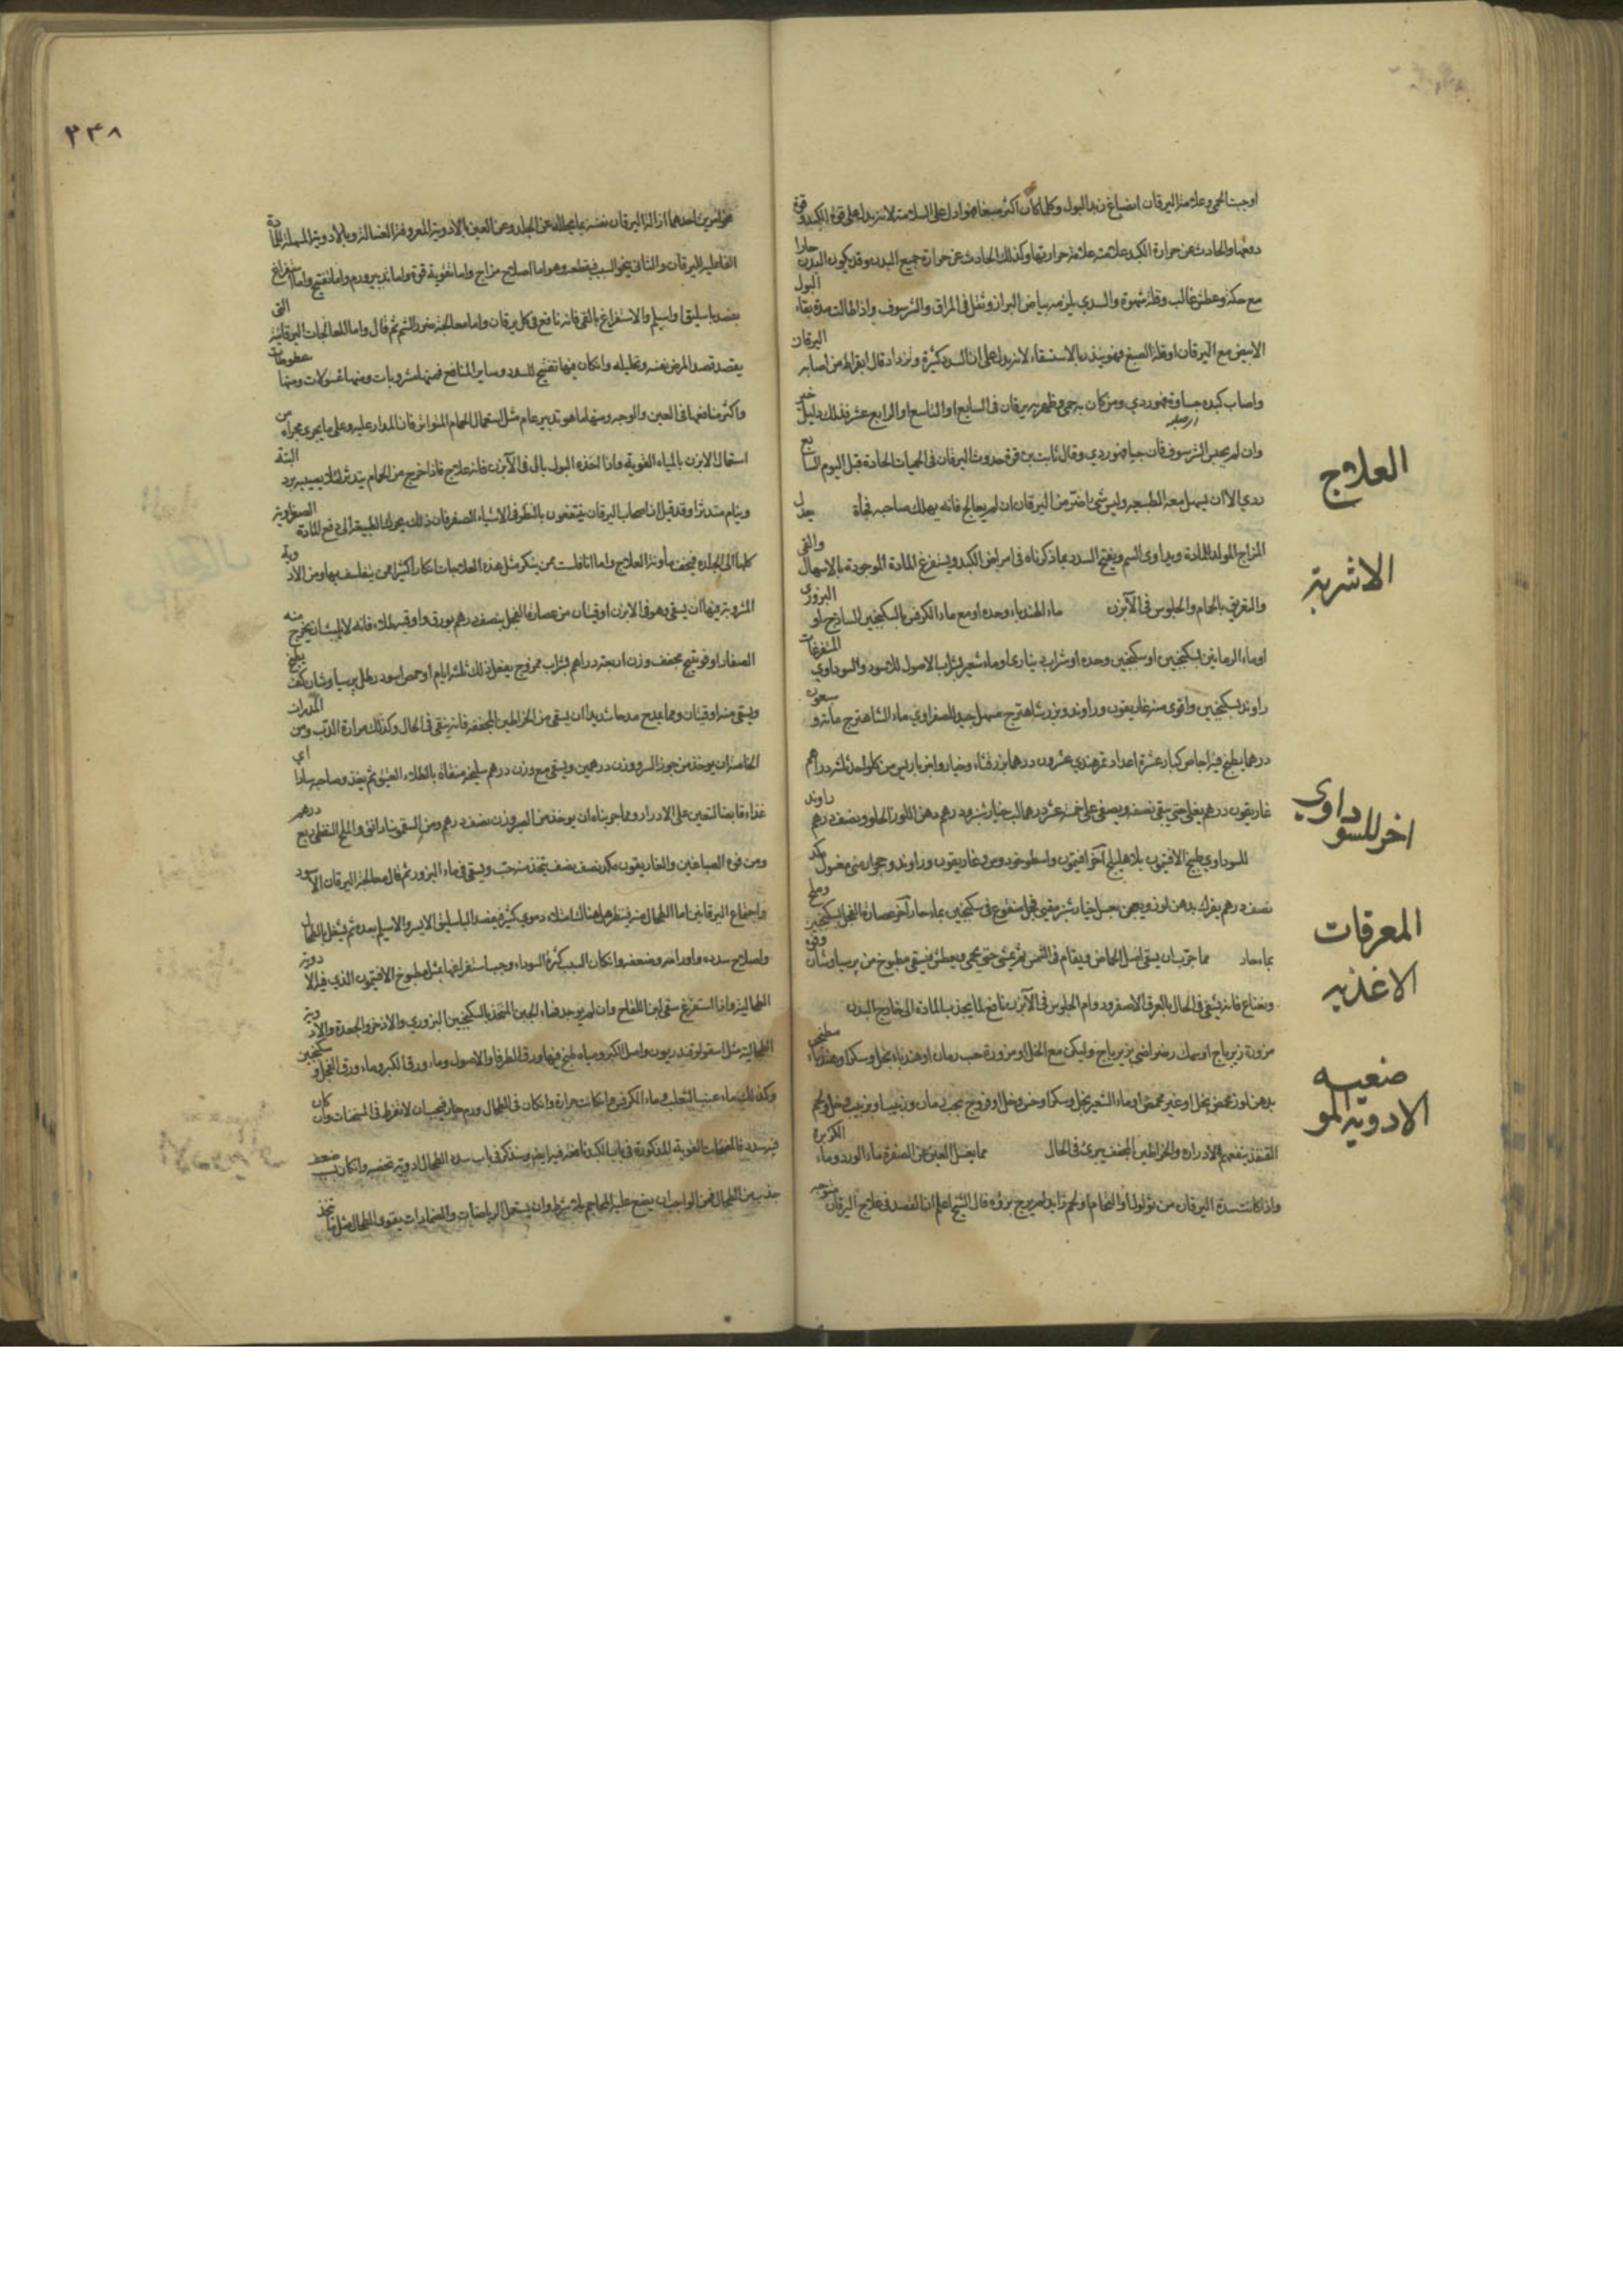 اوجبت الحمى وعلامة اليرقان انصباغ زبد البول وكلما كان اكثر صبغا فهو ادل على السلامة لانه يدل على قوة الكبد و قوة
دفعها والحادث عن حرارة الكبد علامته علامة حرارتها وكذلك الحادث عن حرارة جميع البدن وقد يكون البدن حارا
مع حكة وعطش غالب وقلة شهوة والسدي يلزمه بياض البراز وثقل في المراق والشرسوف واذا طالت مدة بقاء البول
الابيض مع اليرقان او قلة الصبغ فهو ينذر بالاستسقاء لانه يدل على ان السدد كثيرة وتزداد قال ابقراط من اصابه اليرقان
واصاب كبده جساوة فهو ردي ومن كان به حمى وظهر به يرقان في السابع او التاسع او الرابع عشر فذلك دليل خير
وان لم يصلب الشرسوف فان جسا فهو ردي وقال ثابت بن قرة حدوث اليرقان في الحميات الحادة قبل اليوم السابع
ردي الا ان يسهل معه الطبيعة وليس شئ اضر من اليرقان ان لم يعالج فانه يهلك صاحبه فجأة
العلاج
المزاج المولد للمادة ويداوى السم ويفتح السدد بما ذكرناه في امراض الكبد ويستفرغ المادة الموجودة بالاسهال والقي
والتعريق بالحمام والجلوس في الآبزن
الاشربة
ماء الهندباء وحده او مع ماء الكرفس بالسكنجبين الساذج او البزوري
او ماء الرمانين بسكنجبين او سكنجبين وحده او شراب ديناري او ماء شعير بشراب الاصول للاسود والسوداوي المستفرغات
راوند بسكنجبين واقوى منه غاريقون وراوند وبزر شاهترج مسهل جيد للصفراوي ماء الشاهترج مائة و سبعون
درهما يطبخ فيه اجاص كبار عشرة اعداد تمر هندي عشرون درهما بزر قثاء وخيار وانبرباريس من كل واحد ثلثه دراهم
غاريقون درهم يغلى حتى يبقى نصفه ويصفى على خمسة عشر درهما لب خيار شنبر ودرهم دهن اللوز الحلو ونصف درهم راوند
اخر للسوداوي
للسوداوي طبيخ الافتيمون بلا هليلج آخر افتيمون واسطوخودوس وغاريقون وراوند وحجر ارمني مغسول
نصف درهم يفرك بدهن لوز ويعجن بعسل خيار شنبر مقيئ فجل منقوع في سكنجبين بماء حار آخر عصارة الفجل بسكنجبين
المعرقات
بماء حار مما جرب ان يسقى اصل الحماض ويقام في الشمس ثم يمشى حتى يحمى ويعطش فيسقى مطبوخ من برسياوشان
ونعناع فانه يشفى في الحال بالعرق الاصفر ودوام الجلوس في الآبزن نافع لما يجذب المادة الى خارج البدن
الاغذيه
مزورة زيرباج او سمك رضراضي بزيرباج وليكن مع الخل او مزورة حب رمان او هندباء بخل وسكر او هندباء مطبخن
بدهن لوز محمض بخل او غير محمض او ماء الشعير بخل وسكر او خس وخل او فروج بحب رمان وزبيب او بزبيب وخل ولحم
القنفذ ينفعهم لادراره والخراطين المجفف يبرئ في الحال
الادويه المو
ضعيه
مما يغسل العين عن الصفرة ماء الورد وماء الكزبرة
واذا كانت سدة اليرقان من ثؤلول او التحام او لحم زايد لم يرج برؤه قال الشيخ اعلم ان القصد في علاج اليرقان
٣٤٨
امرين احدهما ازالة اليرقان نفسه بما يحلله عن الجلد وعن العين بالادوية المعروفة الغسالة وبالادوية المسهلة للمادة
الفاعلة لليرقان والثاني نحو السبب فيقطعه وهو اما اصلاح مزاج واما تقوية قوة واما تدبير ورم واما تفتيح واما استفراغ
بفصد باسليق او اسيلم والاستفراغ بالقي فانه نافع في كل يرقان واما معالجة ضرر السم ثم قال واما المعالجات اليرقانية التي
يقصد قصد المرض نفسه وتحليله وان كان فيها تفتيح للسدد وساير المنافع فمنها مشروبات ومنها غسولات ومنها سعوطات
واكثر منافعها في العين والوجه ومنها ما هو تدبير عام مثل استعمال الحمام المتواتر فان المدار عليه وعلى ما يجري مجراه من
استعمال الابزن بالمياه القوية واذا اخذه البول بال في الآبزن فانه علاج فاذا خرج من الحمام يتدثر لئلا يصيبه برد البتة
وينام متدثرا وقد قيل ان اصحاب اليرقان ينتفعون بالنظر في الاشياء الصفر فان ذلك يحرك الطبيعة الى دفع المادة الصفراوية
كلها الى الجلد فيخف مأونة العلاج واما انا فلست ممن ينكر مثل هذه العلاجات انكار اكثر من يتفلسف بها ومن الادوية
المشروبة فيها ان يسقى وهو في الابزن اوقيتان من عصارة الفجل بنصف درهم بورق واوقية طلاء فانه لا يلبث ان يخرج منه
الصفار او فوتنج مجفف وزن اربعة دراهم بشراب ممزوج يفعل ذلك ثلثه ايام او حمص اسود رطل برسياوشان كف يطبخ
ويسقى منه اوقيتان ومما يمدح مدحا شديدا ان يسقى من الخراطين المجففة فانه يشفى في الحال وكذلك مرارة الدب ومن المدرات
الخاصة ان يوخذ من جوز السرو وزن درهمين ويسقى مع وزن درهم سليخة منقاة بالطلاء العتيق ثم يغذى صاحبه بادنى اي
غذاء قابضا لتعين على الادرار ومما جربناه ان يوخذ من الصبر وزن نصف درهم ومن السقمونيا دانق والملح النفطي ربع درهم
ومن فوة الصباغين والغاريقون مكد نصف نصف يتخذ منه حب ويسقى في ماء البزور ثم قال معالجة اليرقان الاسود
واجتماع اليرقانين اما الطحال منه فينظر هل هناك امتلاء دموي كثير فيفصد الباسليق الايسر والاسيلم بعده ثم يشتغل بالطحال
واصلاح سدده واورامه وضعفه وان كان السبب كثرة السوداء وجب استفراغها بمثل مطبوخ الافتيمون الذي فيه الادوية
الطحالية واذا استفرغ سقى لبن اللقاح وان لم يوجد فماء الجبن المتخذ بالسكنجبين البزوري والاذخر والجعدة والادوية
الطحالية مثل اسقولوقندريون واصل الكبر ومياه طبخ فيها ورق الطرفا والاصول وماء ورق الكبر وماء ورق الفجل و سكنجبين
وكذلك ماء عنب الثعلب وماء الكرفس وان كانت حرارة وان كان في الطحال ورم حار فيجب ان لا تفرط في المسخنات وان كان
فيه سدد فالمفتحات القوية المذكورة في باب الكبد نافعة فيه ايضا وستذكر في باب سدد الطحال ادوية تخصه وان كان بسبب ضعف
جذب من الطحال فمن الواجب ان يوضع عليه المحاجم بلا شرط وان يستعمل الرياضات والضمادات يقوى الطحال مثل ما يتخذ